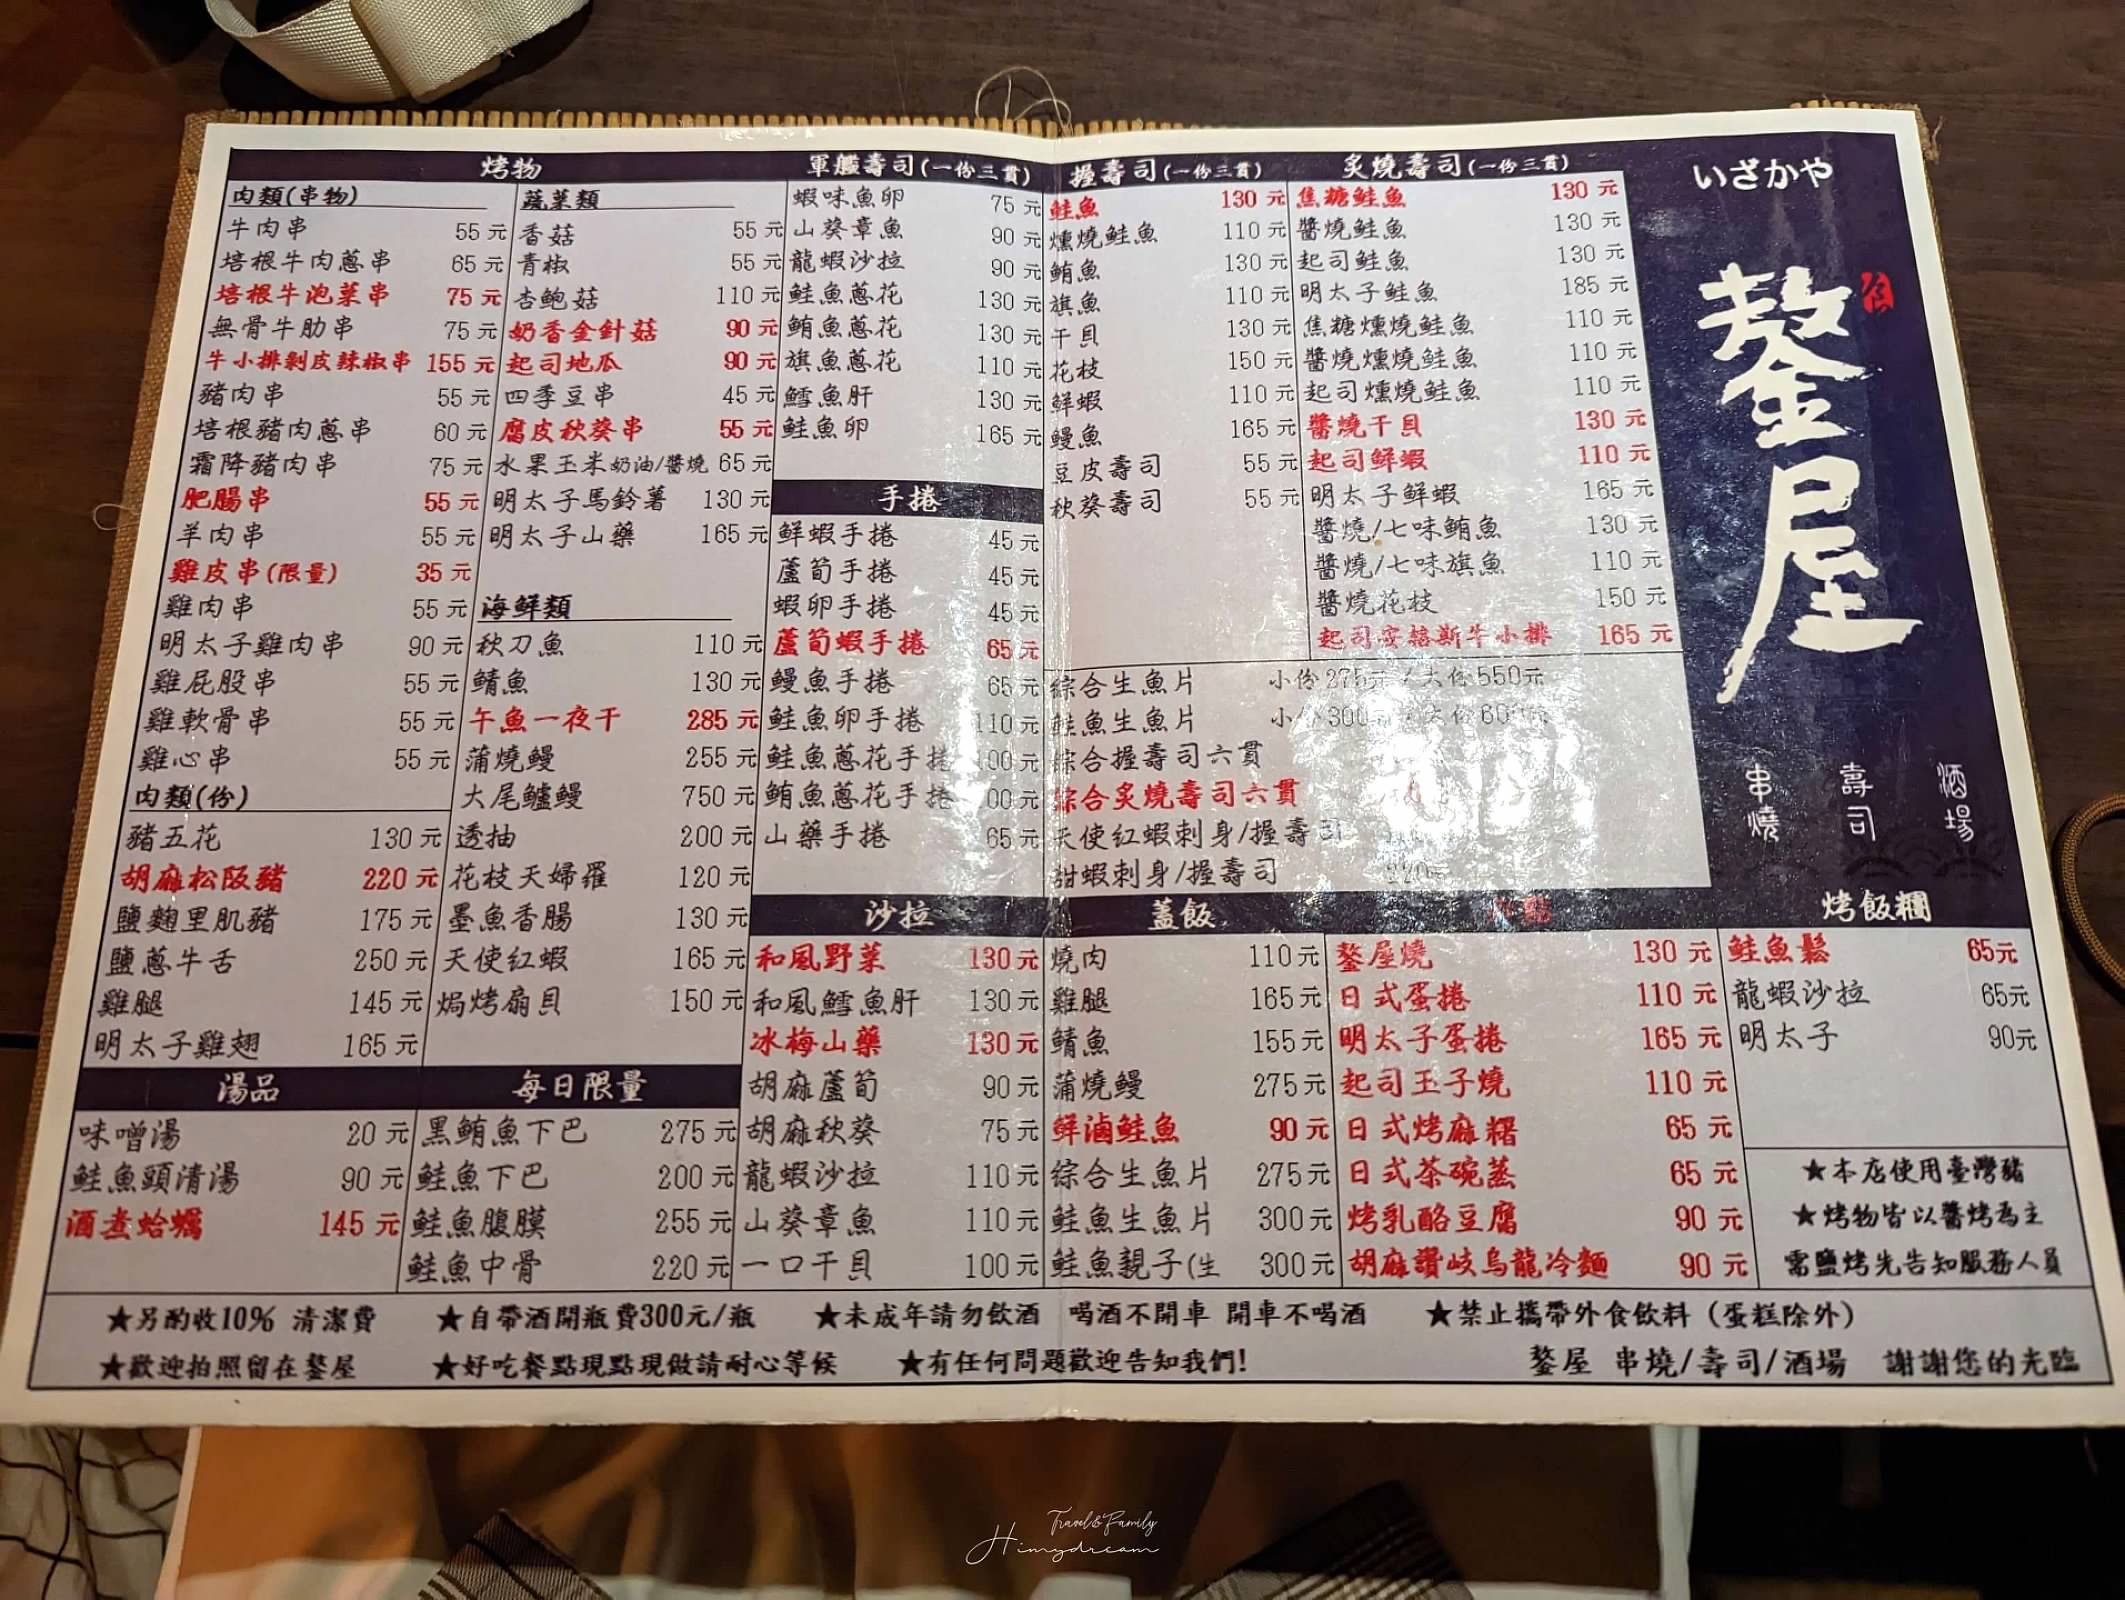 烤物
肉類(串物)
牛肉串 55元
培根牛肉蔥串 65元
培根牛泡菜串 75元
無骨牛肋串 75元
牛小排剝皮辣椒串 155元
豬肉串 55元
培根豬肉蔥串 60元
霜降豬肉串 75元
肥腸串 55元
羊肉串 55元
雞皮串(限量) 35元
雞肉串 55元
明太子雞肉串 90元
雞屁股串 55元
雞軟骨串 55元
雞心串 55元
肉類(份)
豬五花 130元
胡麻松阪豬 220元
鹽麴里肌豬 175元
鹽蔥牛舌 250元
雞腿 145元
明太子雞翅 165元
蔬菜類
香菇 55元
青椒 55元
杏鮑菇 110元
奶香金針菇 90元
起司地瓜 90元
四季豆串 45元
腐皮秋葵串 55元
水果玉米奶油/醬燒 65元
明太子馬鈴薯 130元
明太子山藥 165元
海鮮類
秋刀魚 110元
鯖魚 130元
午魚一夜干 285元
蒲燒鰻 255元
大尾鱸鰻 750元
透抽 200元
花枝天婦羅 120元
墨魚香腸 130元
天使紅蝦 165元
焗烤扇貝 150元
湯品
味噌湯 20元
鮭魚頭清湯 90元
酒煮蛤蠣 145元
每日限量
黑鮪魚下巴 275元
鮭魚下巴 200元
鮭魚腹膜 255元
鮭魚中骨 220元
軍艦壽司(一份三貫)
蝦味魚卵 75元
山葵章魚 90元
龍蝦沙拉 90元
鮭魚蔥花 130元
鮪魚蔥花 130元
旗魚蔥花 110元
鱈魚肝 130元
鮭魚卵 165元
手捲
鮮蝦手捲 45元
蘆筍手捲 45元
蝦卵手捲 45元
蘆筍蝦手捲 65元
鰻魚手捲 65元
鮭魚卵手捲 110元
鮭魚蔥花手捲 00元
鮪魚蔥花手捲 00元
山藥手捲 65元
沙拉
和風野菜 130元
和風鱈魚肝 130元
冰梅山藥 130元
胡麻蘆筍 90元
胡麻秋葵 75元
龍蝦沙拉 110元
山葵章魚 110元
一口干貝 100元
握壽司(一份三貫)
鮭魚 130元
燻燒鮭魚 110元
鮪魚 130元
旗魚 110元
干貝 130元
花枝 150元
鮮蝦 110元
鰻魚 165元
豆皮壽司 55元
秋葵壽司 55元
炙燒壽司(一份三貫)
焦糖鮭魚 130元
醬燒鮭魚 130元
起司鮭魚 130元
明太子鮭魚 185元
焦糖燻燒鮭魚 110元
醬燒燻燒鮭魚 110元
起司燻燒鮭魚 110元
醬燒干貝 130元
起司鮮蝦 110元
明太子鮮蝦 165元
醬燒/七味鮪魚 130元
醬燒/七味旗魚 110元
醬燒花枝 150元
起司安格斯牛小排 165元
綜合生魚片 小份275元/大份550元
鮭魚生魚片 小份300
綜合握壽司六貫
綜合炙燒壽司六貫
天使紅蝦刺身/握壽司
甜蝦刺身/握壽司
蓋飯
燒肉 110元
雞腿 165元
鯖魚 155元
蒲燒鰻 275元
鮮滷鮭魚 90元
綜合生魚片 275元
鮭魚生魚片 300元
鮭魚親子(生 300元
鏊屋燒 130元
日式蛋捲 110元
明太子蛋捲 165元
起司玉子燒 110元
日式烤麻糬 65元
日式茶碗蒸 65元
烤乳酪豆腐 90元
胡麻讚岐烏龍冷麵 90元
烤飯糰
鮭魚鬆 65元
龍蝦沙拉 65元
明太子 90元
★本店使用臺灣豬
★烤物皆以醬烤為主
需鹽烤先告知服務人員
いざかや
鏊屋
串燒 壽司 酒場
★另酌收10% 清潔費 ★自帶酒開瓶費300元/瓶 ★未成年請勿飲酒 喝酒不開車 開車不喝酒 ★禁止攜帶外食飲料(蛋糕除外)
★歡迎拍照留在鏊屋 ★好吃餐點現點現做請耐心等候 ★有任何問題歡迎告知我們! 鏊屋 串燒/壽司/酒場 謝謝您的光臨
Travel&Family
Himydream